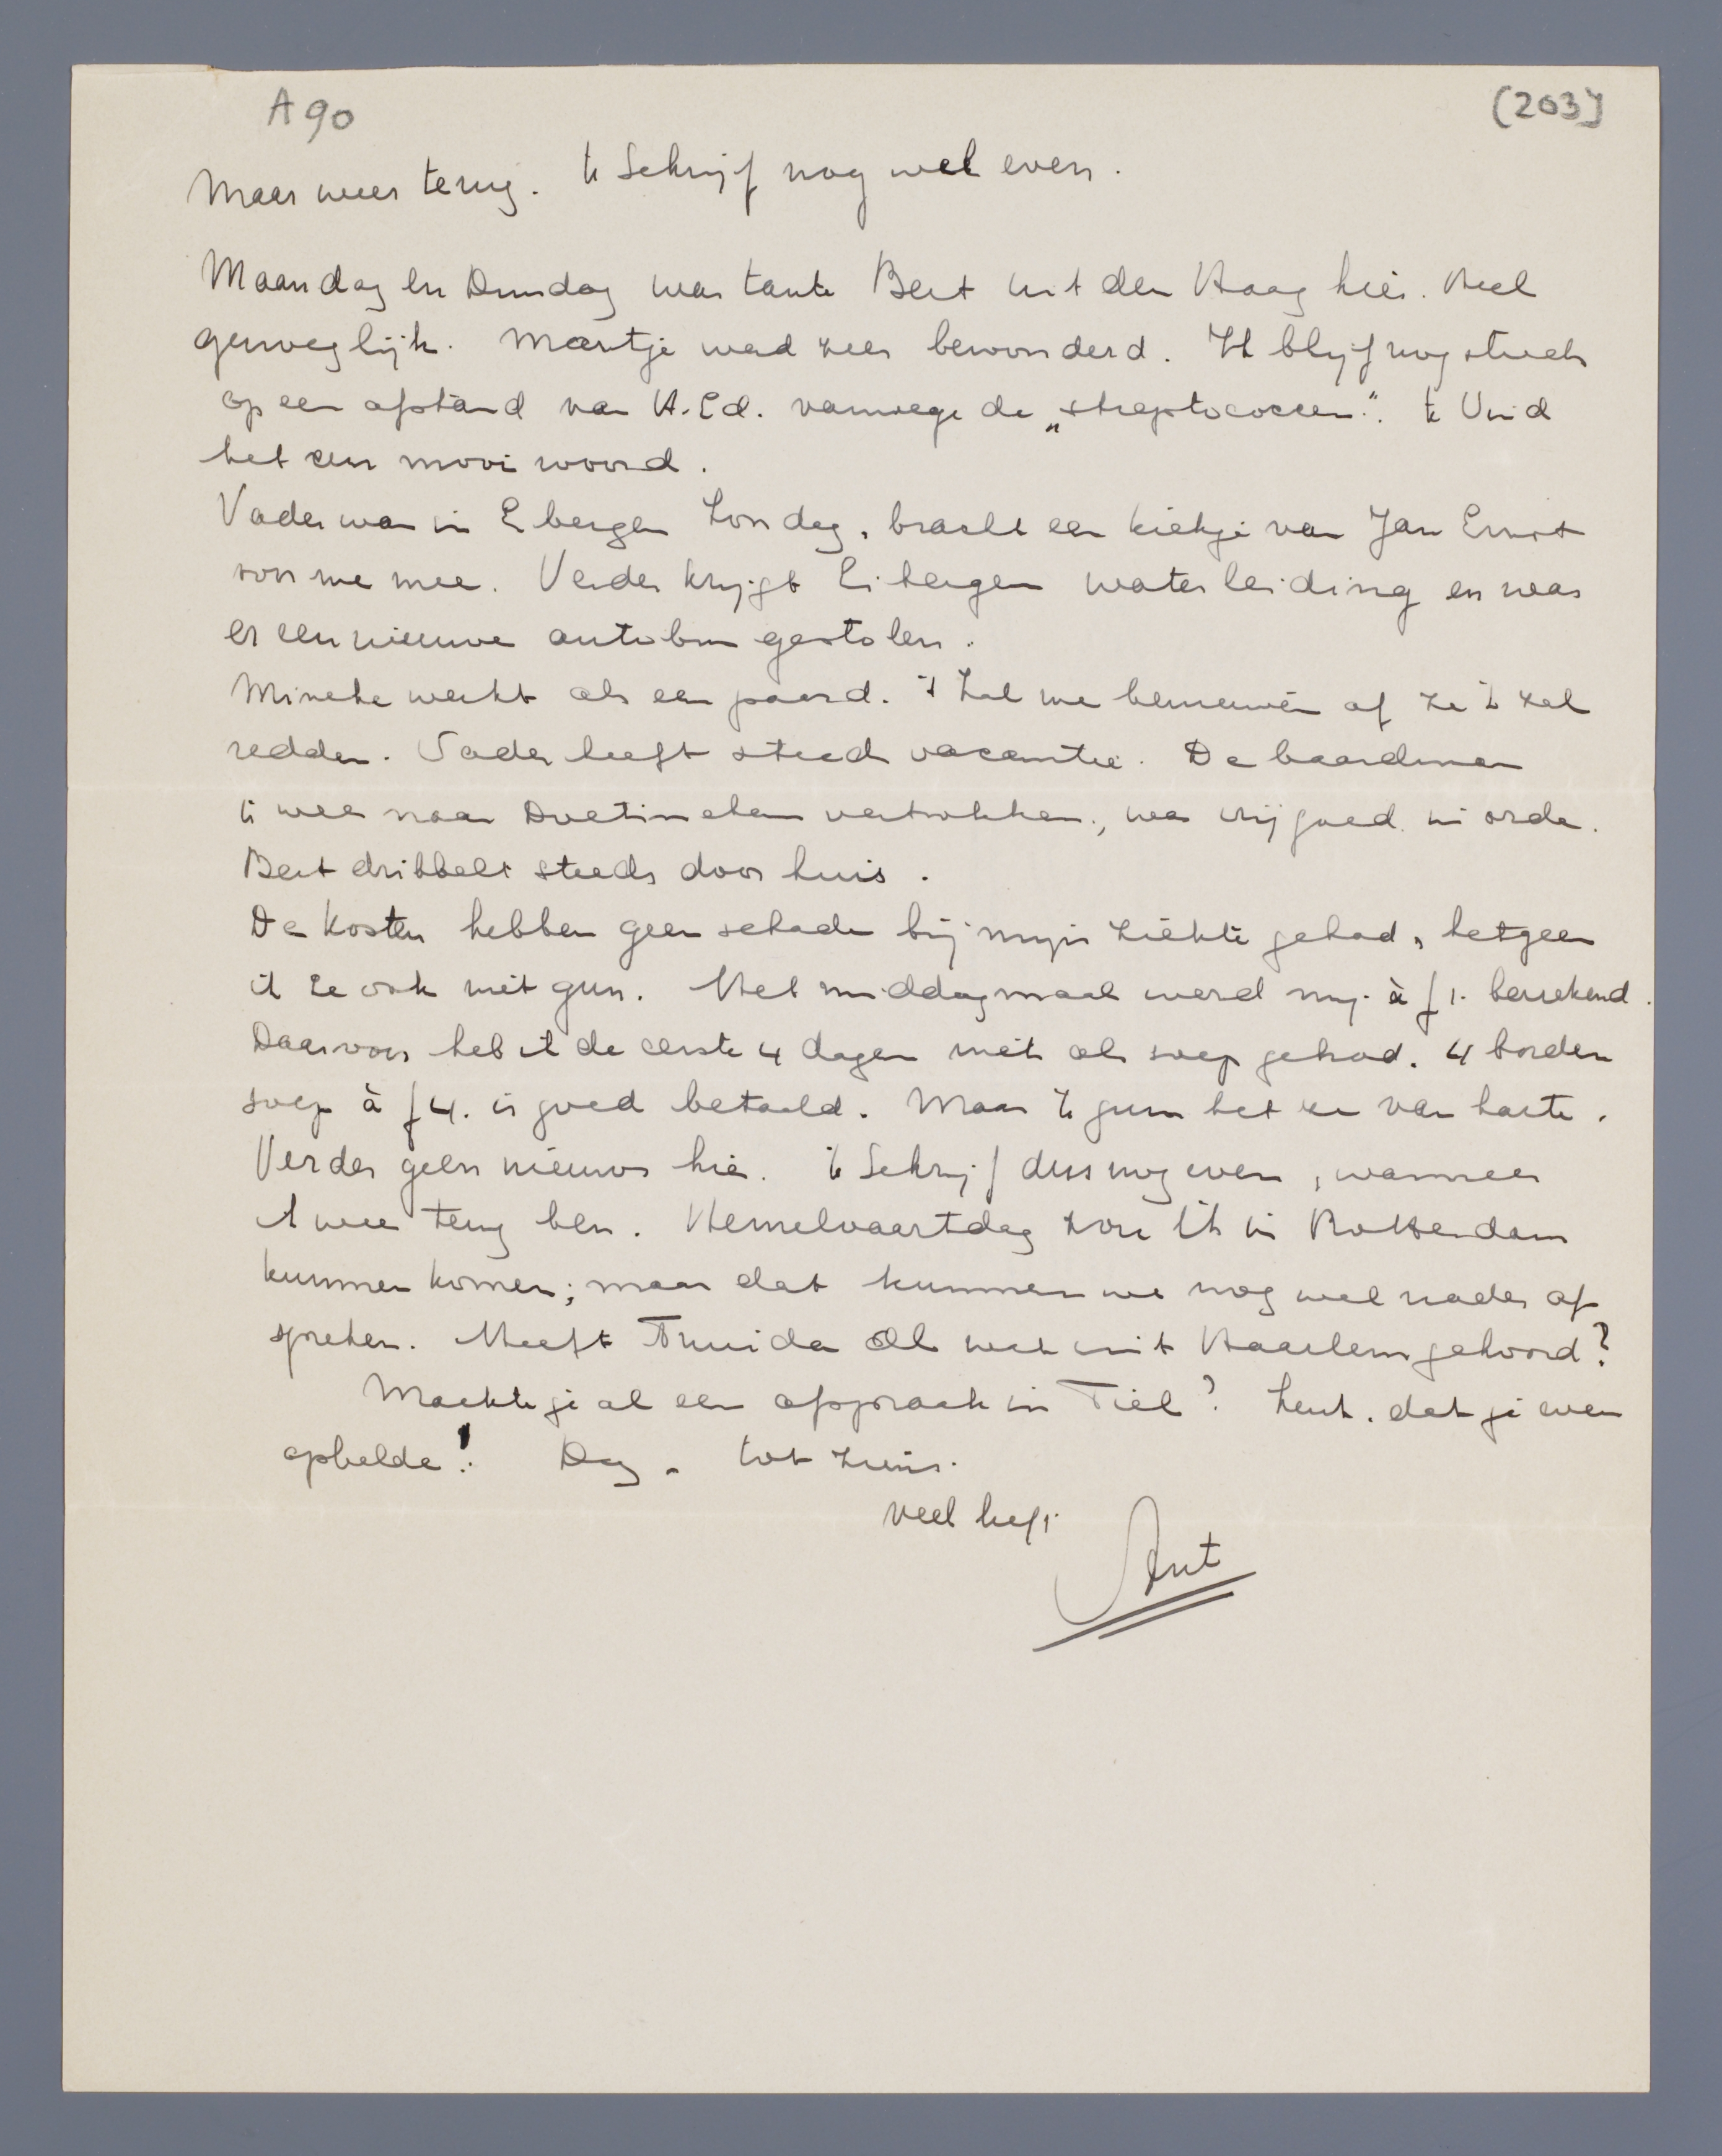 A 90
(203)
Maar weer terug. Ik schrijf nog wel even.
Maandag en Dinsdag was tante Bert uit den Haag hier. Heel
genoeglijk. Maartje werd zeer bewonderd. Ik blijf nog steeds
op een afstand van H.Ed. vanwege de „streptococcen". Ik vind
het een mooi woord.
Vader was in Eibergen Zondag, bracht een kiekje van Jan Ernst
voor me mee. Verder krijgt Eibergen waterleiding en was
er een nieuwe autobus gestolen.
Mineke werkt als een paard. 't Zal me benieuwen of ze 't zal
redden. Vader heeft steeds vacantie. De baardman
is weer naar Doetinchem vertrokken, was vrij goed in orde.
Bert dribbelt steeds door huis.
De Kosters hebben geen schade bij mijn ziekte gehad, hetgeen
ik ze ook niet gun. Het middagmaal werd mij à f 1. berekend.
Daarvoor heb ik de eerste 4 dagen niets als soep gehad. 4 borden
soep à f 4. is goed betaald. Maar ik gun het ze van harte.
Verder geen nieuws hier. Ik schrijf dus nog even, wanneer
ik weer terug ben. Hemelvaartdag zou ik in Rotterdam
kunnen komen; maar dat kunnen we nog wel nader af
spreken. Heeft Truida al wat uit Haarlem gehoord?
Maakte je al een afspraak in Tiel? Leuk, dat je even
opbelde! Dag, tot ziens.
veel liefs
Ant